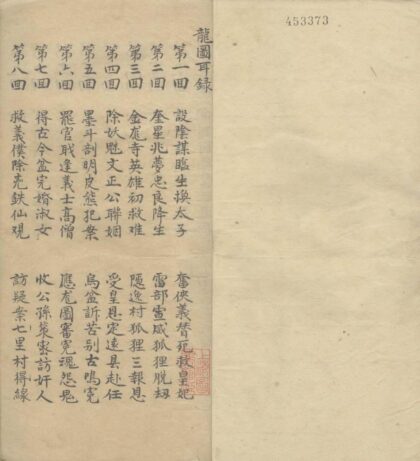 453373
龍圖耳録
第一回 設陰謀臨生換太子 奮俠義替死救皇妃
第二回 奎星兆夢忠良降生 雷部宣威狐狸脫刼
第三回 金龙寺英雄初救難 隱逸村狐狸三報恩
第四回 除妖魅文正公聯姻 受皇恩定遠县赴任
第五回 墨斗剖明皮熊犯案 烏盆訴苦别古鳴寃
第六回 罷官职逢義士高僧 應龙圖審寃魂怨鬼
第七回 得古今盆完婚淑女 收公孫策密訪奸人
第八回 救義僕除兇鉄仙观 訪疑案七里村得線